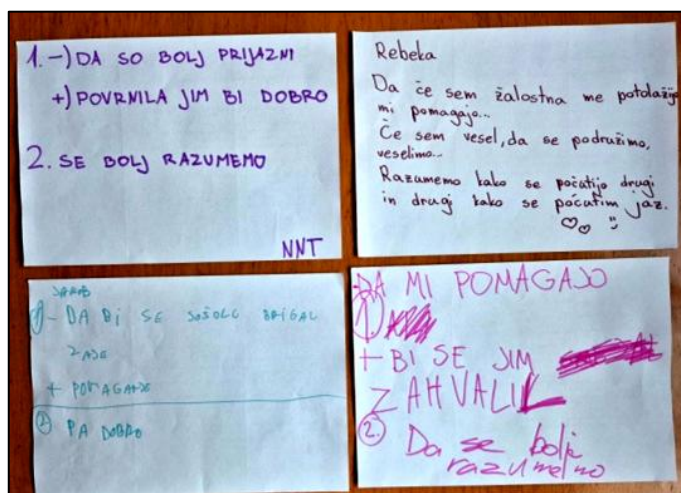 1. -) DA SO BOLJ PRIJAZNI
+) POVRNILA JIM BI DOBRO
2. SE BOLJ RAZUMEMO
NNT
Rebeka
Da če sem žalostna me potolažijo
mi pomagajo...
Če sem vesel, da se podružimo,
veselimo...
Razumemo kako se počutijo drugi
in drugi kako se počutim jaz.
1 - DA BI SE SOŠOLC BRIGAL
ZASE
+ POMAGANJE
2 PA DOBRO
DA MI POMAGAJO
1)
+ BI SE JIM
ZAHVALIL
2. Da se bolje
razumemo